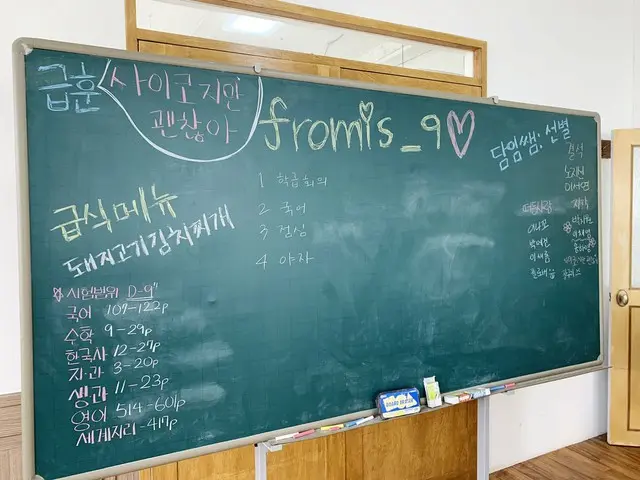 급훈 사이코지만
괜찮아
fromis_9
담임쌤: 선별
결석
이서영
지각
1 학급회의
2 국어
3 점심
4 야자
급식메뉴
돼지고기김치찌개
시험범위 D-9"
국어 109-122p
수학 9-29p
한국사 12-27p
지·과 3-20p
생·과 11-23p
영어 514-601p
세계지리-417p